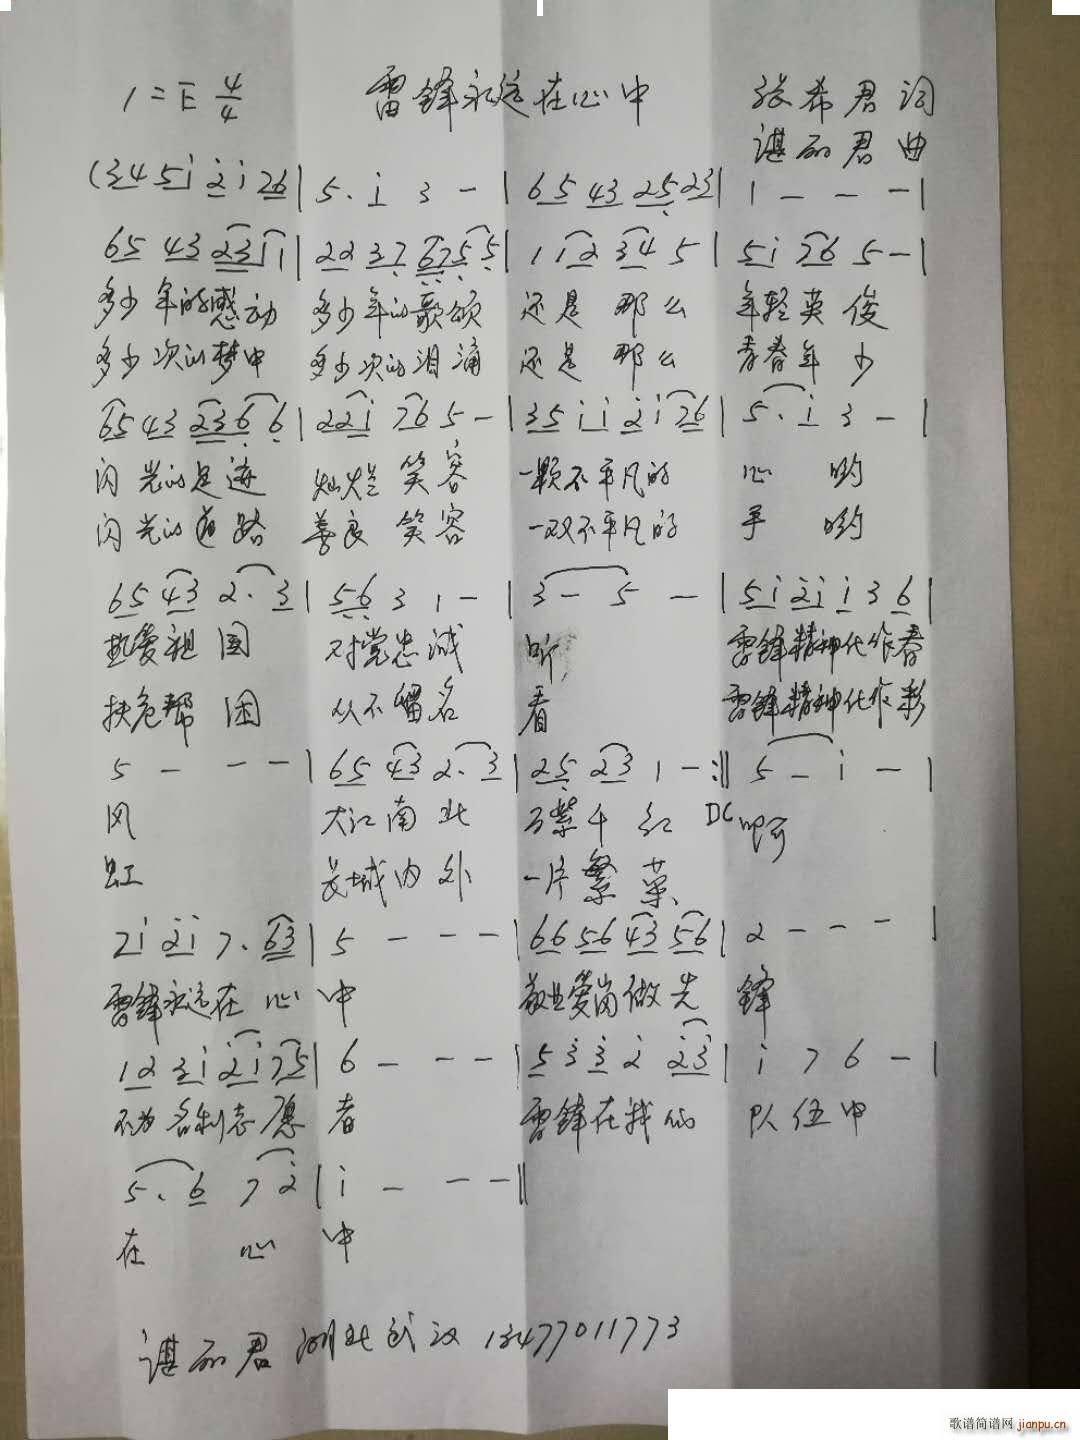 1=E 4/4 雷锋永远在心中 张希君词
谌丽君曲
(34 5i 2i 26| 5. i 3 -| 65 43 25 23| 1 - - -|
65 43 23 1 1| 22 37 675 5| 1 12 34 5| 5i 76 5 -|
多少年的感动 多少年的歌颂 还是那么 年轻英俊
多少次的梦中 多少次的泪涌 还是那么 青春年少
65 43 236 6| 22i 76 5 -| 35 ii 2i 76| 5. i 3 -|
闪光的足迹 灿烂笑容 一颗不平凡的 心哟
闪光的道路 善良笑容 一双不平凡的 手哟
65 43 2. 3| 56 3 1 -| 3 - 5 -| 5i 2i i 3 6|
热爱祖国 对党忠诚 听 雷锋精神化作春
扶危帮困 从不留名 看 雷锋精神化作彩
5 - - -| 65 43 2. 3| 25 23 1 -:|| 5 - i -|
风 大江南北 万紫千红 DC 啊
虹 长城内外 一片繁荣
7i 2i 7. 63| 5 - - -| 66 56 43 56| 2 - - -|
雷锋永远在心中 敬业爱岗做先锋
12 3i 2i 75| 6 - - -| 5 3 3 2 23| i 7 6 -|
不为名利志愿者 雷锋在我们 队伍中
5. 6 7 2| i - - -||
在心中
谌丽君 湖北武汉 13477011773
歌谱简谱网 jianpu.cn